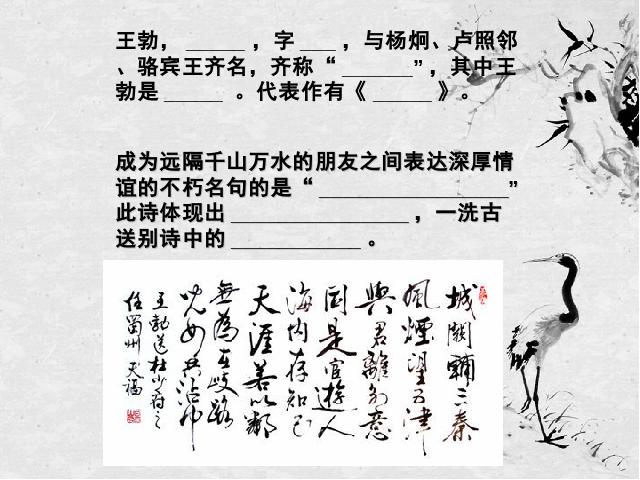 王勃， _____ ，字 ___ ，与杨炯、卢照邻
、骆宾王齐名，齐称“ ______”，其中王
勃是 _____ 。代表作有《 _____ 》。
成为远隔千山万水的朋友之间表达深厚情
谊的不朽名句的是“ ________________”
此诗体现出 _______________ ，一洗古
送别诗中的 ___________ 。
城闕輔三秦
風煙望五津
與君離別意
同是宦遊人
海内存知己
天涯若比鄰
無為在歧路
兒女共沾巾
王勃送杜少府之
任蜀州 天福